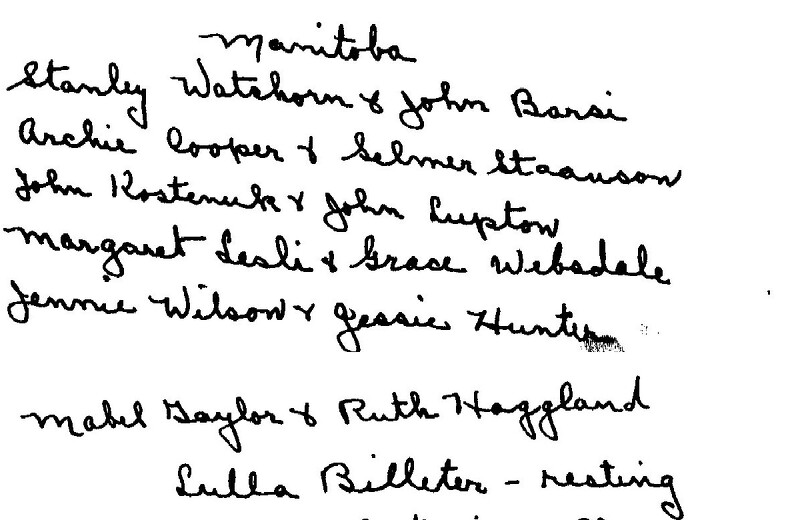 Manitoba
Stanley Watchorn & John Barsi
Archie Cooper & Selmer Staauson
John Kostenuk & John Lupton
Margaret Lesli & Grace Websdale
Jennie Wilson & Jessie Hunter
Mabel Gaylor & Ruth Haggland
Lulla Billeter - resting